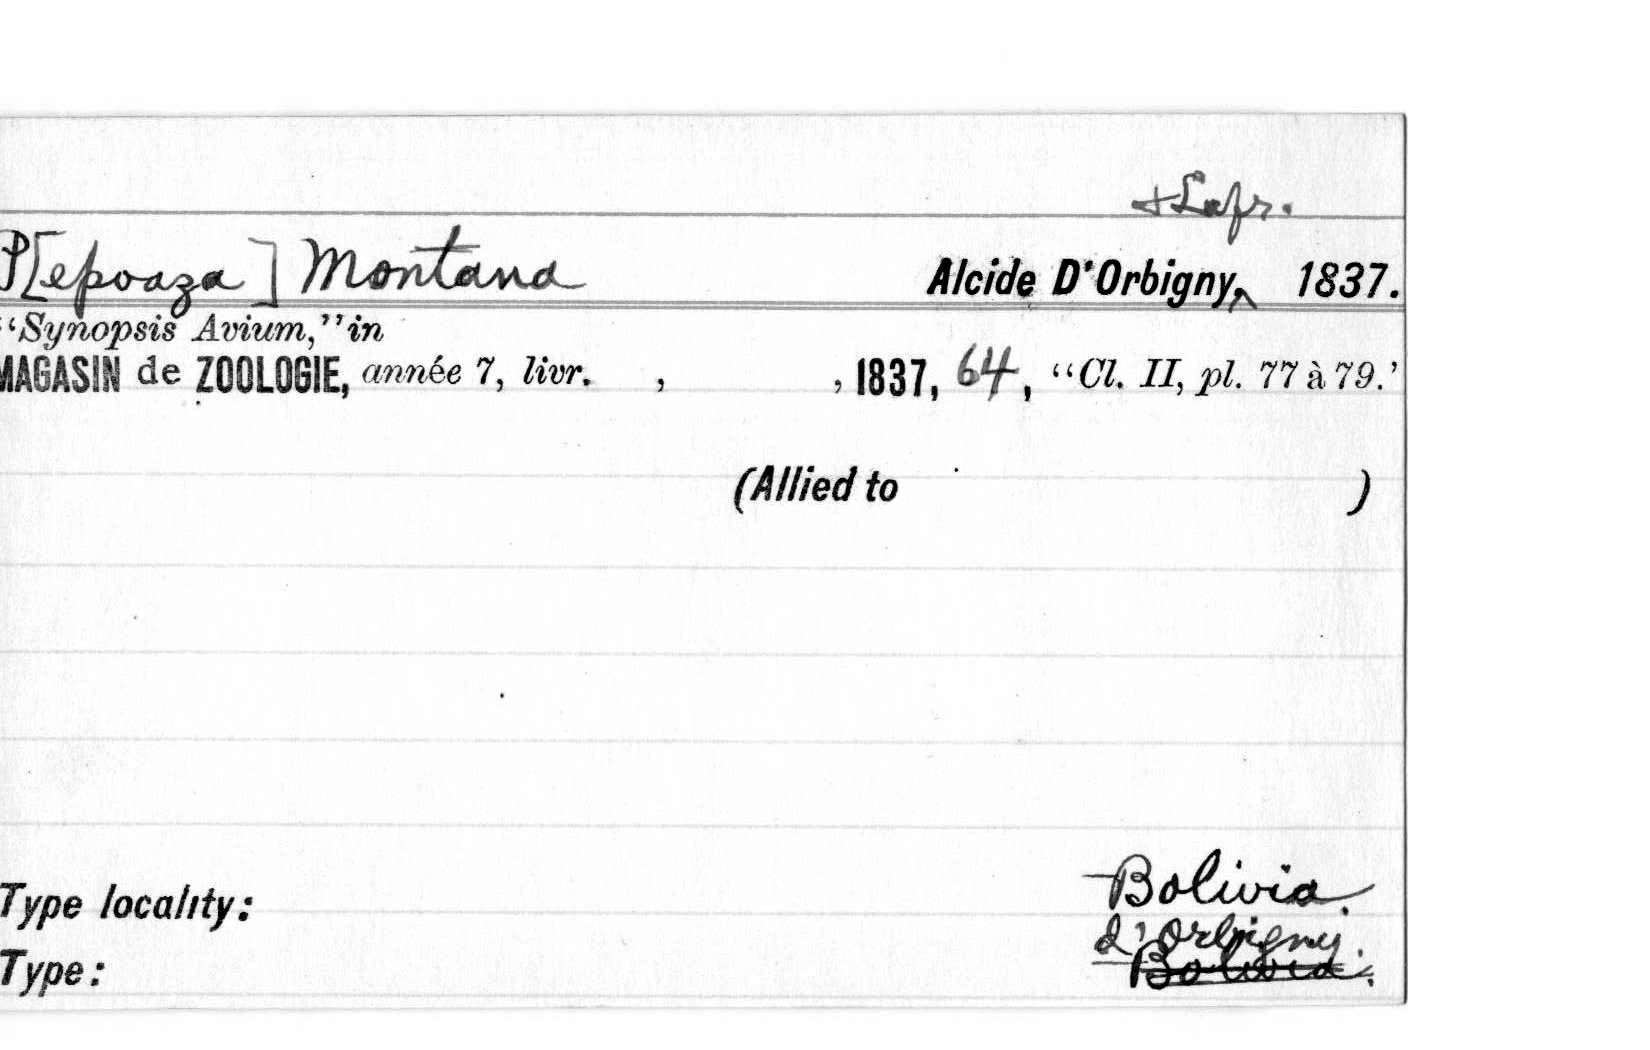 + Lafr.
P[epoaza] Montana Alcide D'Orbigny, ^ 1837.
“Synopsis Avium,” in
MAGASIN de ZOOLOGIE, année 7, livr. , , 1837, 64, “Cl. II, pl. 77 à 79.’
(Allied to )
Type locality: Bolivia.
d'Orbigny.
Type: Bolivia.